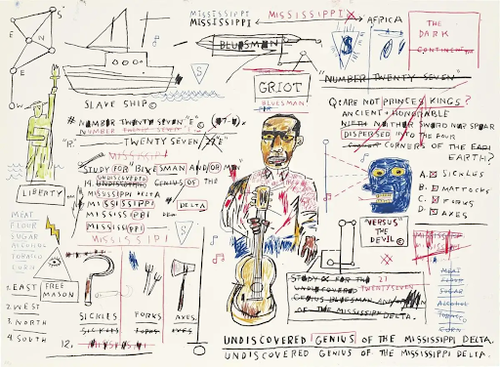 S
N
E
W
MISSISSIPPI
MISSISSIPPI
MISSISSIPPI
AFRICA
BLUESMAN
S
$
THE
DARK
CONTINENT
SLAVE SHIP©
GRIOT
BLUESMAN
"NUMBER TWENTY SEVEN"
# NUMBER TWENTY SEVEN "E"©
NUMBER TWENTY SEVEN
"R"
TWENTY SEVEN
MISSISSIPPI
STUDY FOR BLUESMAN AND/OR
UNDISCOVERED
19. UNDISCOVERED GENIUS OF THE
MISSISSIPPI DELTA
MISSISSIPPI
DELTA
MISSISSIPPI DE
MISSISSIPPI
MISSISSIPPI
LIBERTY
Q: ARE NOT PRINCES KINGS?
ANCIENT + HONORABLE
WITH NEITHER SWORD NOR SPEAR
DISPERSED INTO THE FOUR
CORNERS OF THE
EARTH?
A. SICKLES
B. MATTOCKS
C. FORKS
D. AXES
"VERSUS"
THE
DEVIL©
MEAT
FLOUR
SUGAR
ALCOHOL
TOBACCO
CORN
1. EAST
FREE
MASON
2. WEST
3. NORTH
4. SOUTH
SICKLES
FORKS
AXES
SICKLES
FORKS
AXES
12.
MISSISSIPPI
STUDY FOR THE 27
UNDISCOVERED TWENTYSEVEN
GENIUS BLUESMAN AND/OR
OF THE MISSISSIPPI DELTA.
MISSISSIPPI
MEAT
FLOUR
SUGAR
ALCOHOL
TOBACCO
CORN
UNDISCOVERED GENIUS OF THE MISSISSIPPI DELTA.
UNDISCOVERED GENIUS OF THE MISSISSIPPI DELTA.